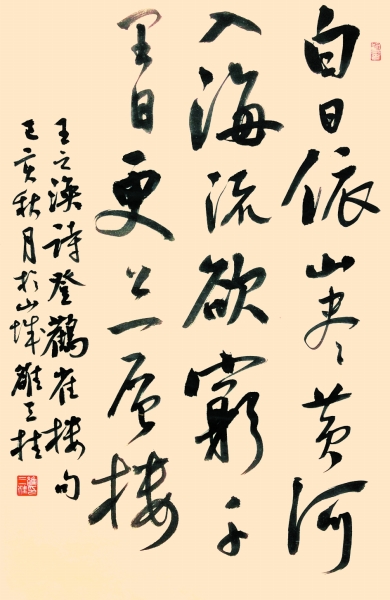 白日依山尽黄河
入海流欲窮千
里目更上一层楼
王之渙詩登鸛雀楼句
己亥秋月於山城雒三桂